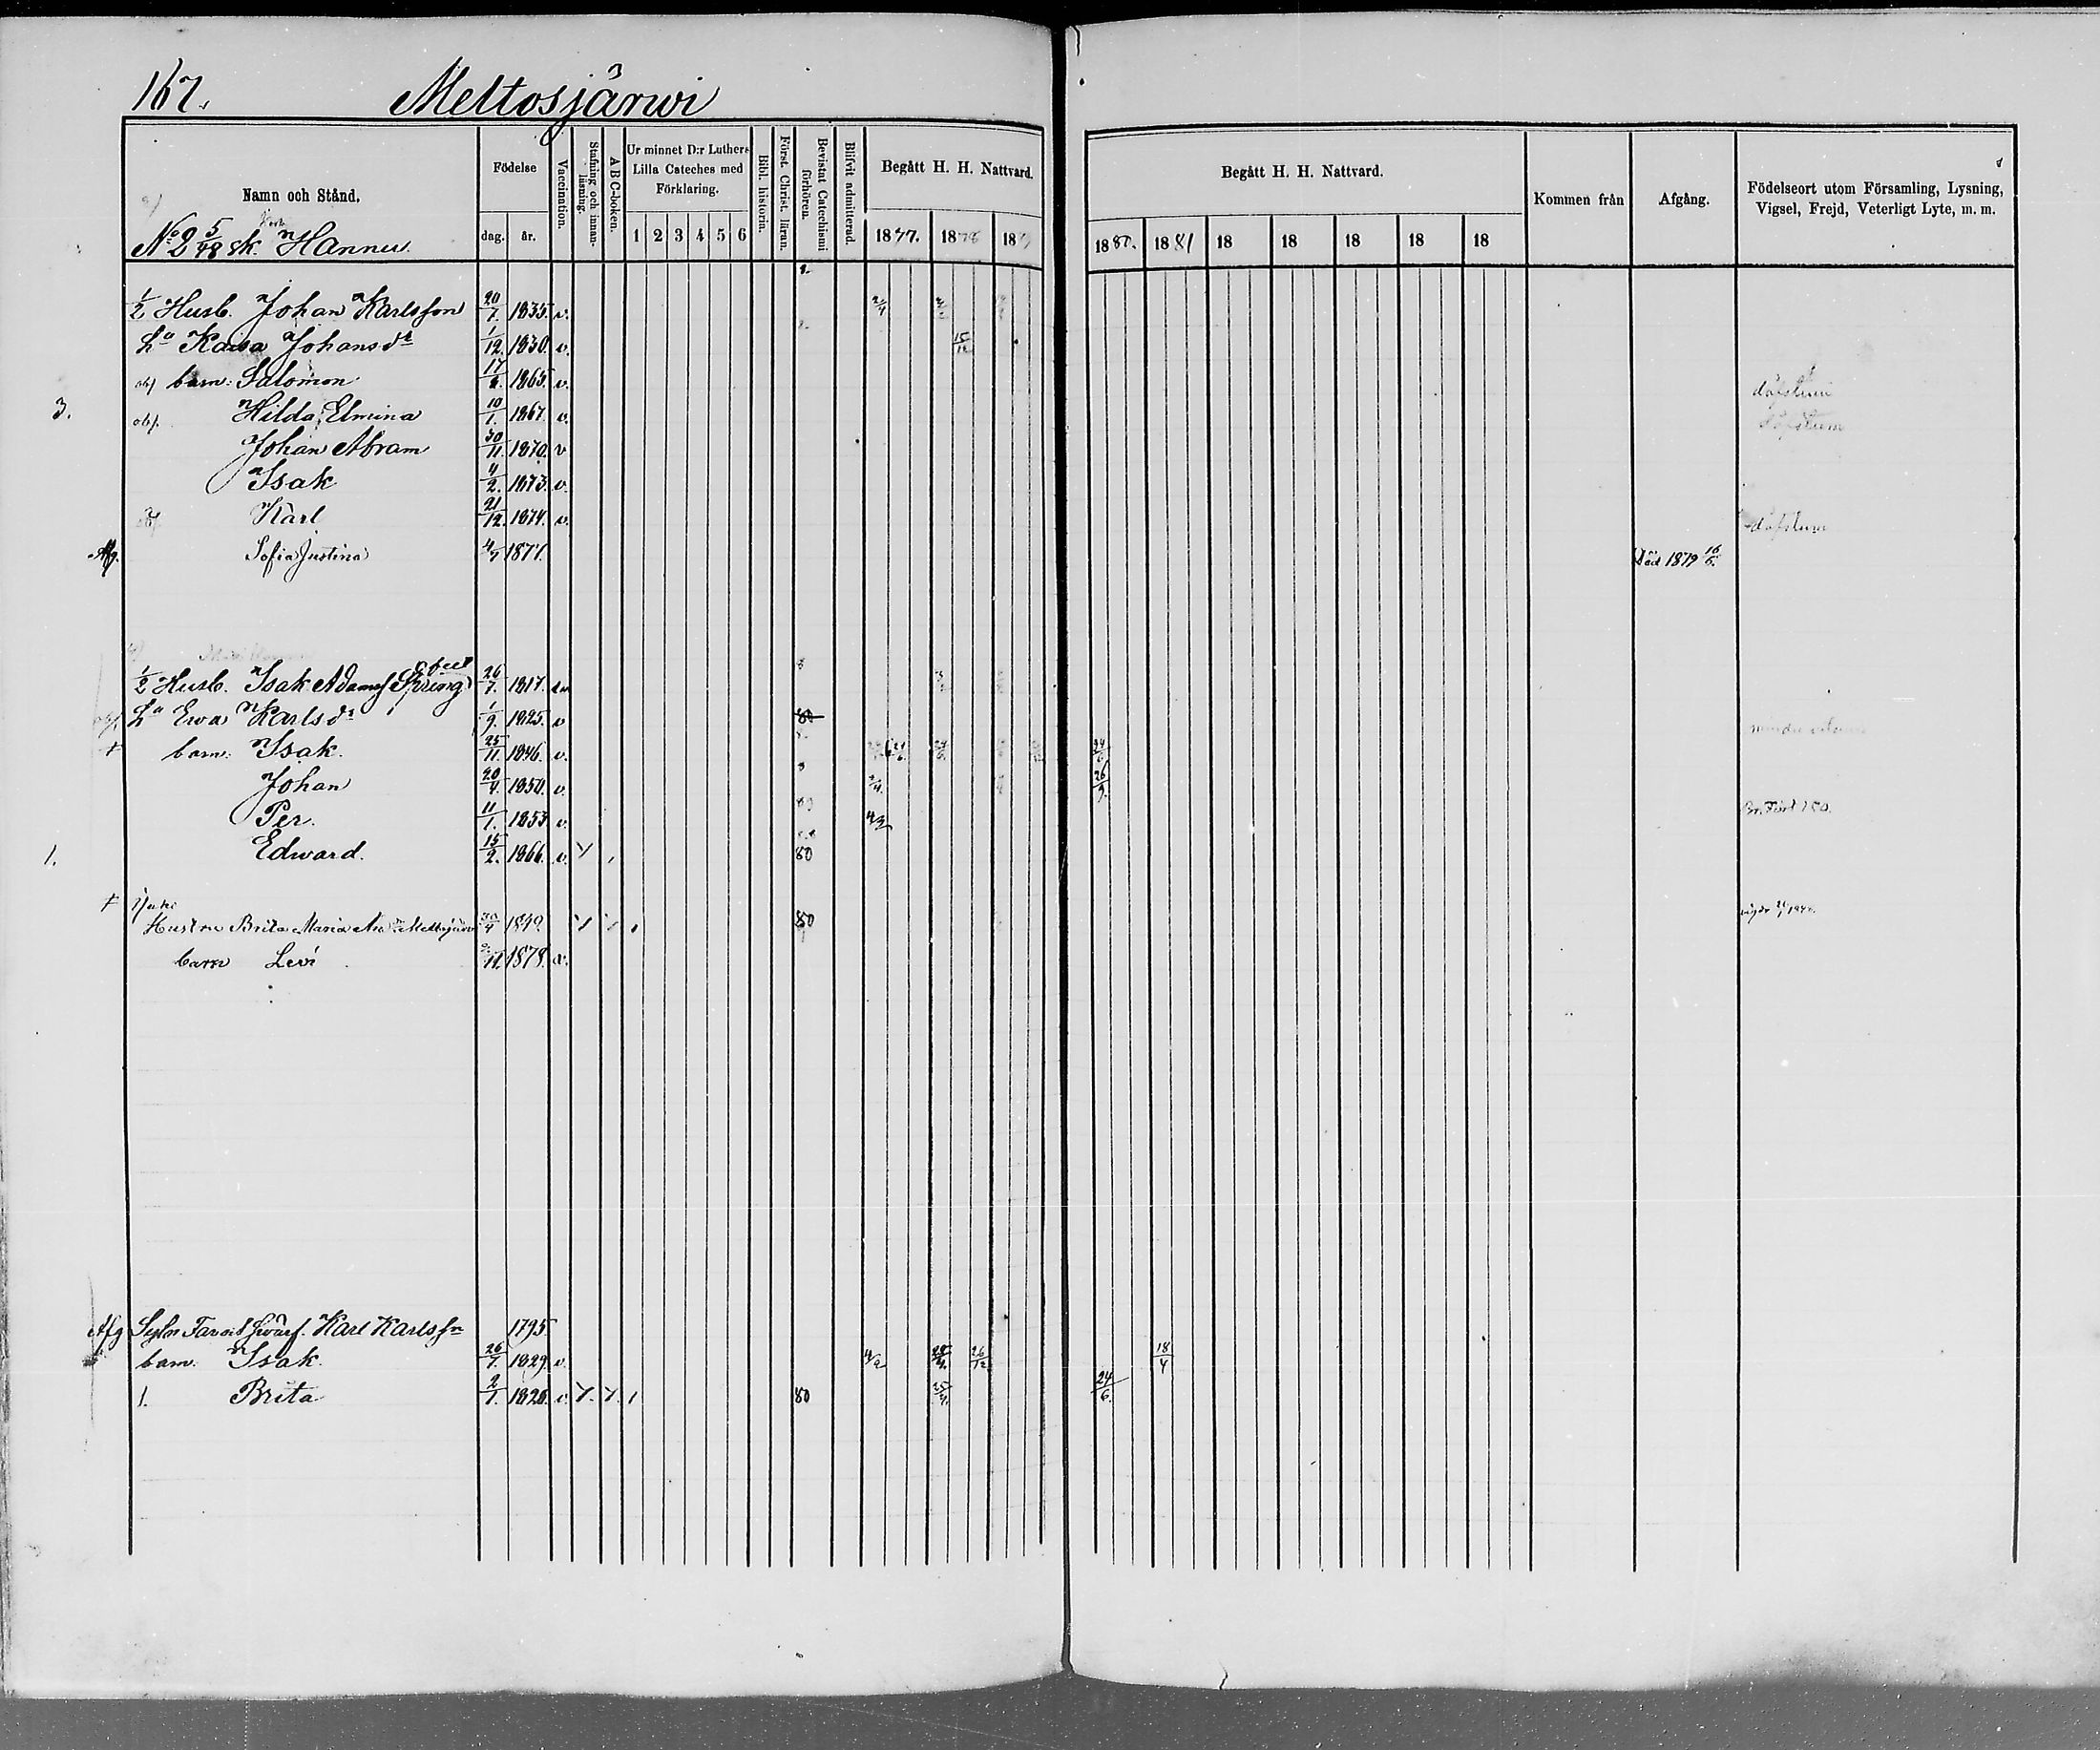 167.
Meltosjärwi
Namn och Stånd.
Födelse
dag. år.
Vaccination.
Stafning och innanläsning.
A B C-boken.
Ur minnet D:r Luthers Lilla Cateches med Förklaring.
1 2 3 4 5 6
Bibl. historin.
Först. Christ. läran.
Bevistat Catechismi förhören.
Blifvit admitterad.
Begått H. H. Nattvard.
1877. 1878 18
Begått H. H. Nattvard.
1880. 1881 18 18 18 18 18
Kommen från
Afgång.
Födelseort utom Församling, Lysning, Vigsel, Frejd, Veterligt Lyte, m. m.
No 2 5/48 sk. Hannu
1/2 Husb. Johan Karlsson 20/7. 1835. v.
Ha Kaisa Johansdr 1/12. 1830. v. 15/12
obf barn: Salomon 17/2. 1865. v. döfstum
3. obf. Hilda Elmina 10/1. 1867. v. döfstum
Johan Abram 30/11. 1870. v
Isak 4/2. 1873. v.
Karl 21/12. 1874. v. döfstum
Afg. Sofia Justina 4/7 1877. Död 1879 16/6.
1/2 Husb. Isak Adamss Spring 26/7. 1817.
Ha Ewa Karlsdr 1/9. 1825. v 80
+ barn: Isak. 25/11. 1846. v. 24/6.
Johan 20/4. 1850. v. 26/9.
Per. 11/1. 1853 v. 4/3
1. Edward. 15/2. 1866. v. 80
+ Hustru Brita Maria 1849. 80
barn Levi 1878.
Afg Sytn. Farod Swärf. Karl Karlssn 1795.
barn. Isak. 26/7. 1829. v. 26/12 18/4
1. Brita 2/1. 1826. v. 80 24/6.